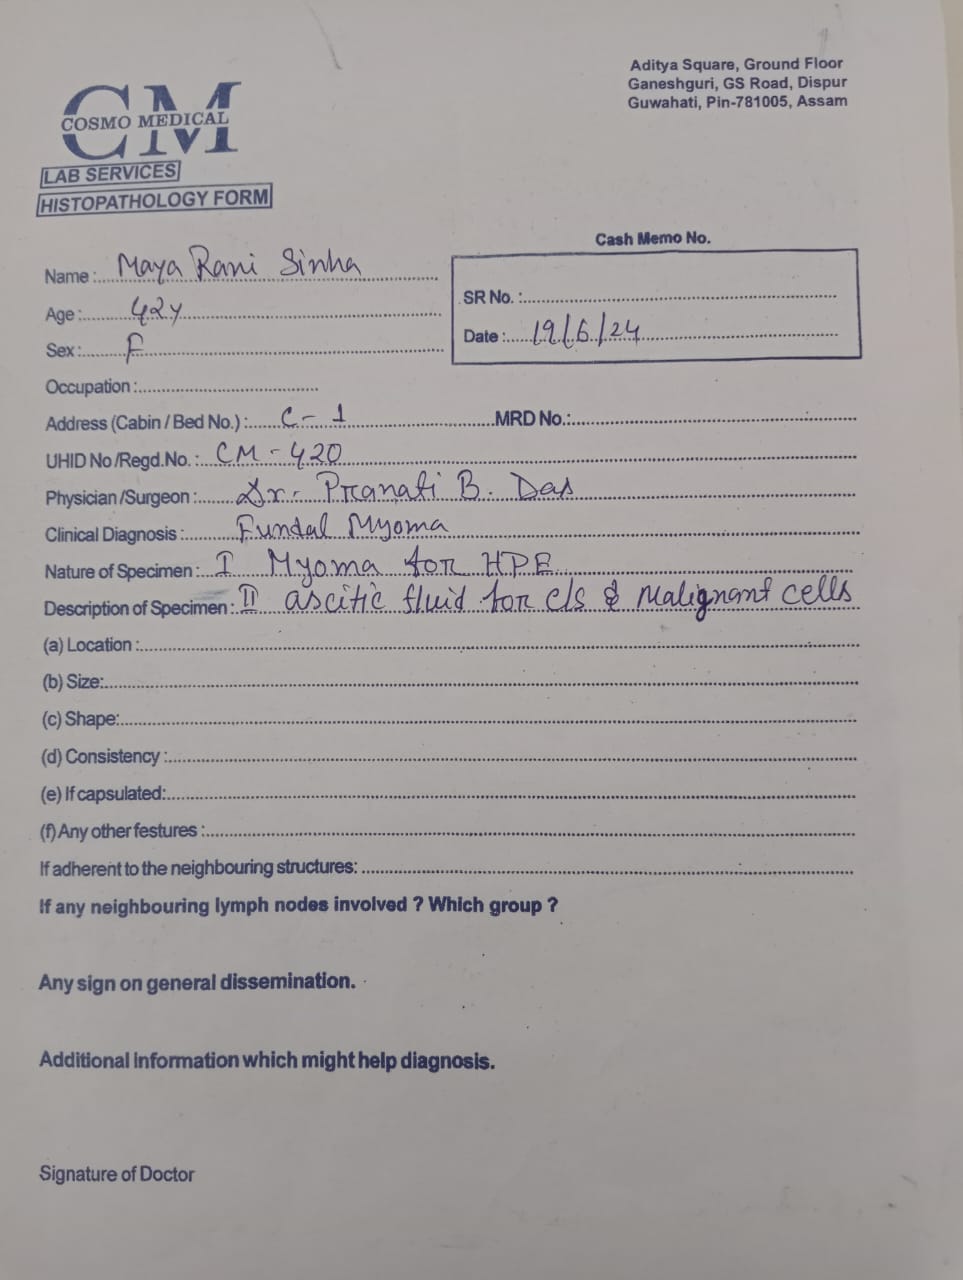 Aditya Square, Ground Floor
Ganeshguri, GS Road, Dispur
Guwahati, Pin-781005, Assam
CM
COSMO MEDICAL
LAB SERVICES
HISTOPATHOLOGY FORM
Cash Memo No.
Name : Maya Rani Sinha
Age : 42y
Sex : F
SR No. :
Date : 19/6/24
Occupation :
Address (Cabin / Bed No.) : C - 1 MRD No.:
UHID No /Regd.No. : CM - 420
Physician /Surgeon : Dr. Pranati B. Das
Clinical Diagnosis : Fundal Myoma
Nature of Specimen : I Myoma for HPE
Description of Specimen : II ascitic fluid for c/s & Malignant cells
(a) Location :
(b) Size:
(c) Shape:
(d) Consistency :
(e) If capsulated:
(f) Any other festures :
If adherent to the neighbouring structures:
If any neighbouring lymph nodes involved ? Which group ?
Any sign on general dissemination.
Additional Information which might help diagnosis.
Signature of Doctor